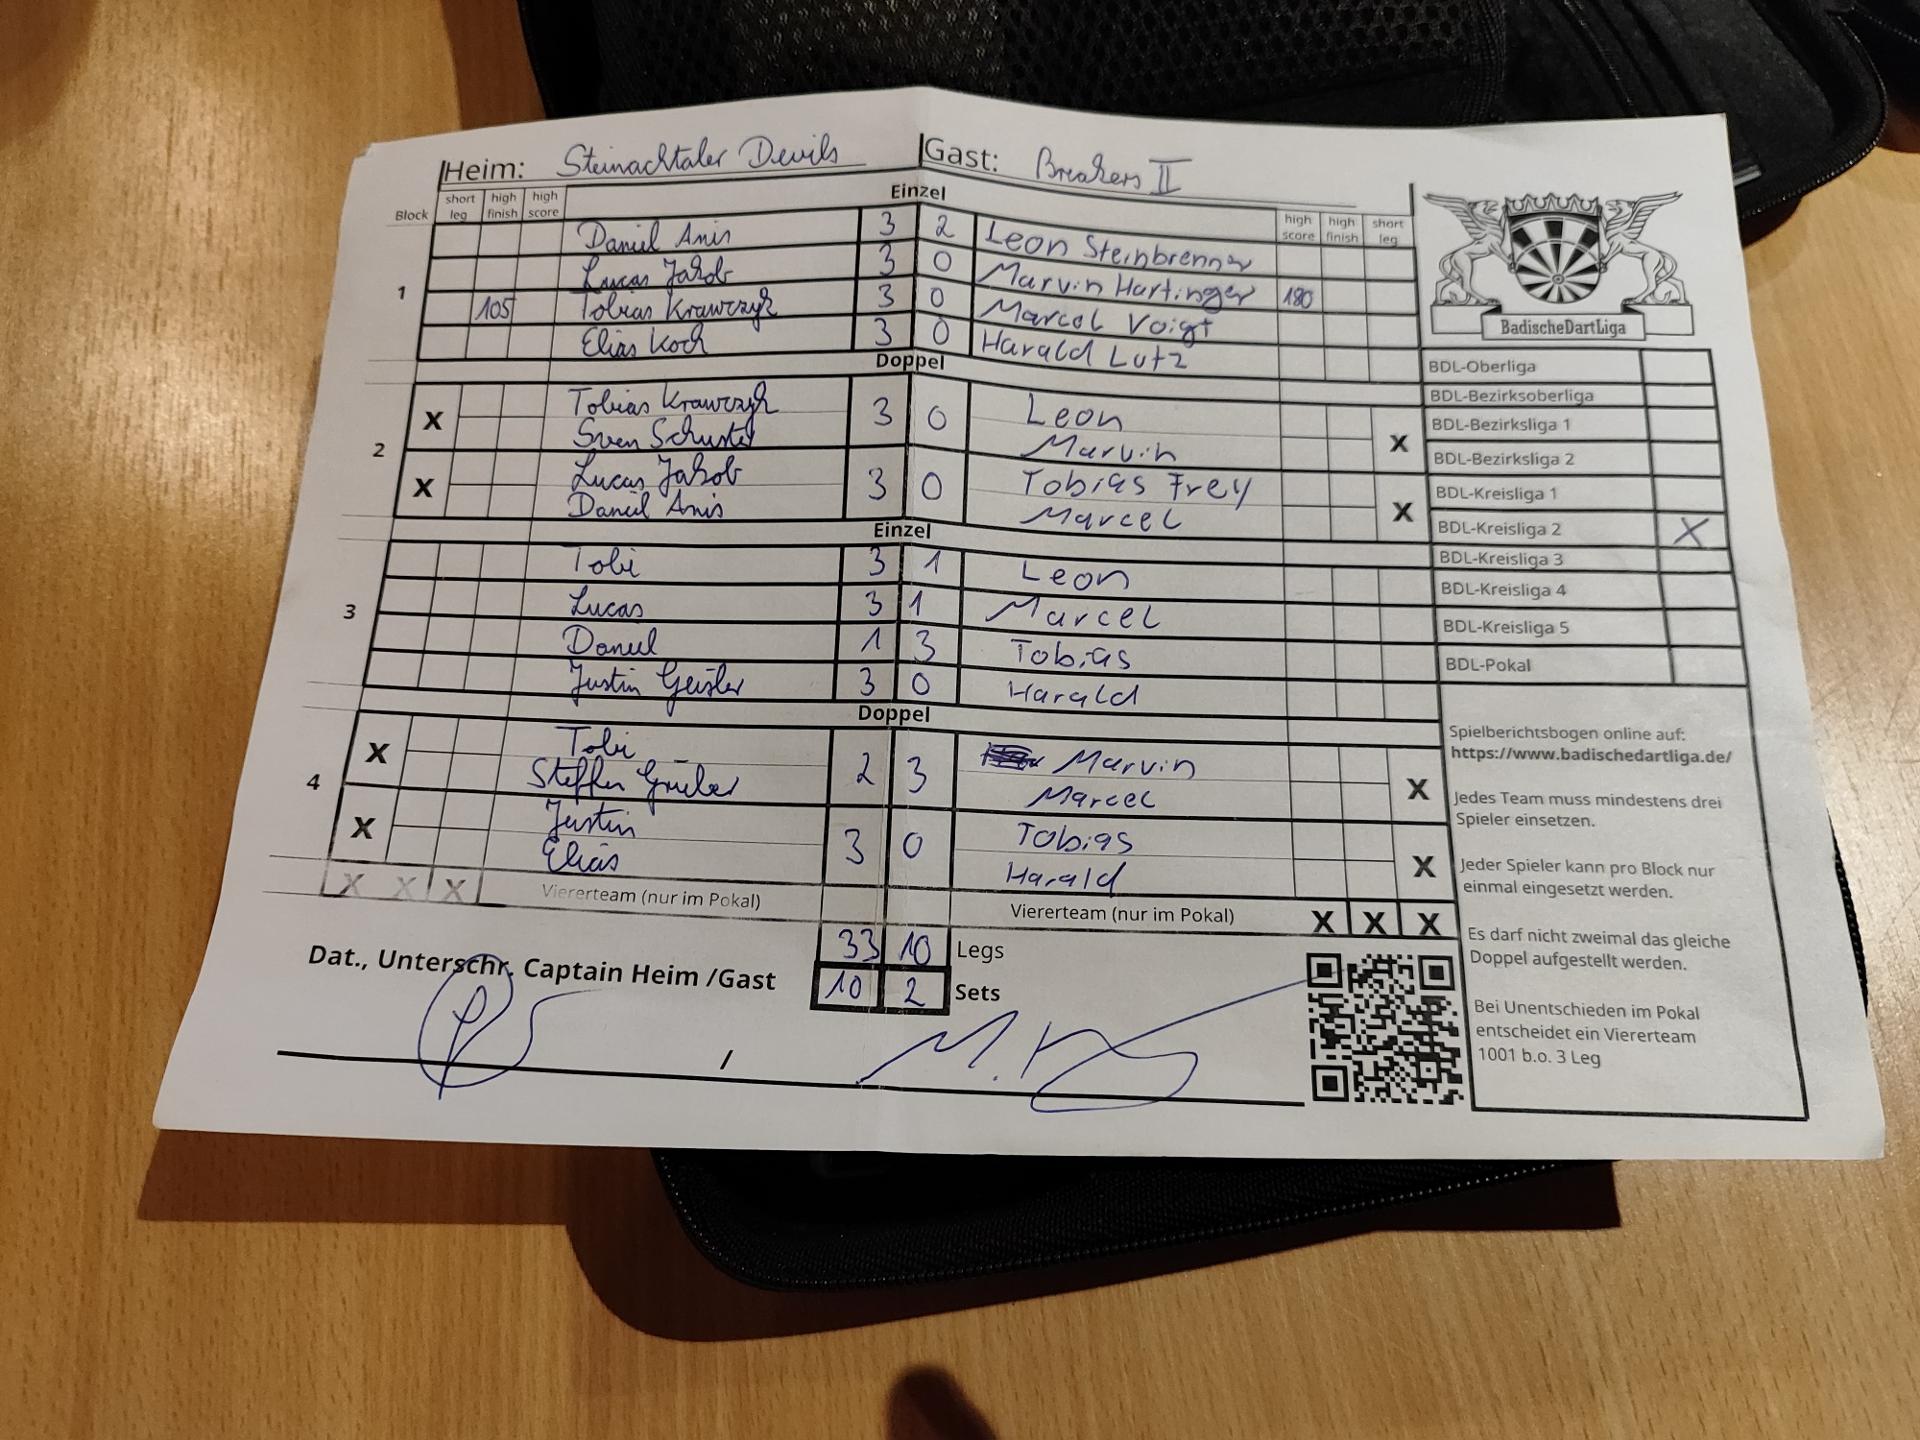 Heim: Steinachtaler Devils Gast: Breakers II
Einzel
Block short leg high finish high score high score high finish short leg
Daniel Anis 3 2 Leon Steinbrenner
Lucas Jakob 3 0 Marvin Hartinger 180
1
105 Tobias Krawczyk 3 0 Marcel Voigt
Elias Koch 3 0 Harald Lutz
Doppel
Tobias Krawczyk Leon
X 3 0 X
Sven Schuster Marvin
2
Lucas Jakob Tobias Frey
X 3 0 X
Daniel Anis Marcel
Einzel
Tobi 3 1 Leon
Lucas 3 1 Marcel
3
Daniel 1 3 Tobias
Justin Geisler 3 0 Harald
Doppel
Tobi Marvin
X 2 3 X
Steffen Gruber Marcel
4
Justin Tobias
X 3 0 X
Elias Harald
X X X Viererteam (nur im Pokal) Viererteam (nur im Pokal) X X X
33 10 Legs
Dat., Unterschr. Captain Heim /Gast
10 2 Sets
/
BadischeDartLiga
BDL-Oberliga
BDL-Bezirksoberliga
BDL-Bezirksliga 1
BDL-Bezirksliga 2
BDL-Kreisliga 1
BDL-Kreisliga 2 X
BDL-Kreisliga 3
BDL-Kreisliga 4
BDL-Kreisliga 5
BDL-Pokal
Spielberichtsbogen online auf:
https://www.badischedartliga.de/
Jedes Team muss mindestens drei
Spieler einsetzen.
Jeder Spieler kann pro Block nur
einmal eingesetzt werden.
Es darf nicht zweimal das gleiche
Doppel aufgestellt werden.
Bei Unentschieden im Pokal
entscheidet ein Viererteam
1001 b.o. 3 Leg